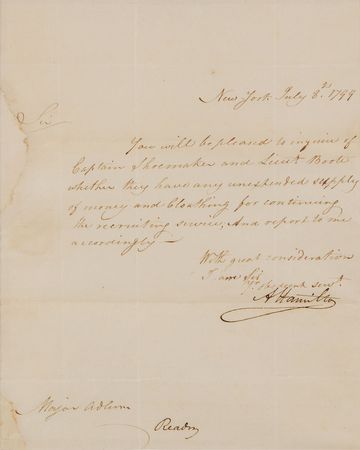 New York July 8th. 1799
Sir
You will be pleased to inquire of
Captain Shoemaker and Lieut Boote
whether they have any unexpended supply
of money and Cloathing for continuing
the recruiting service, And report to me
accordingly —
With great consideration
I am Sir
Yr. Obedient servt.
A Hamilton
Major Adlum
Reading